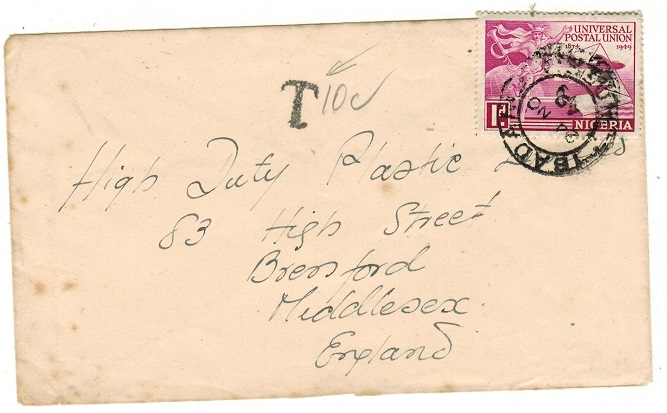 UNIVERSAL
POSTAL UNION
1874 1949
1D
NIGERIA
T 10c
IBAD
NO
High Duty Plastic
83 High Street
Brensford
Middlesex.
England